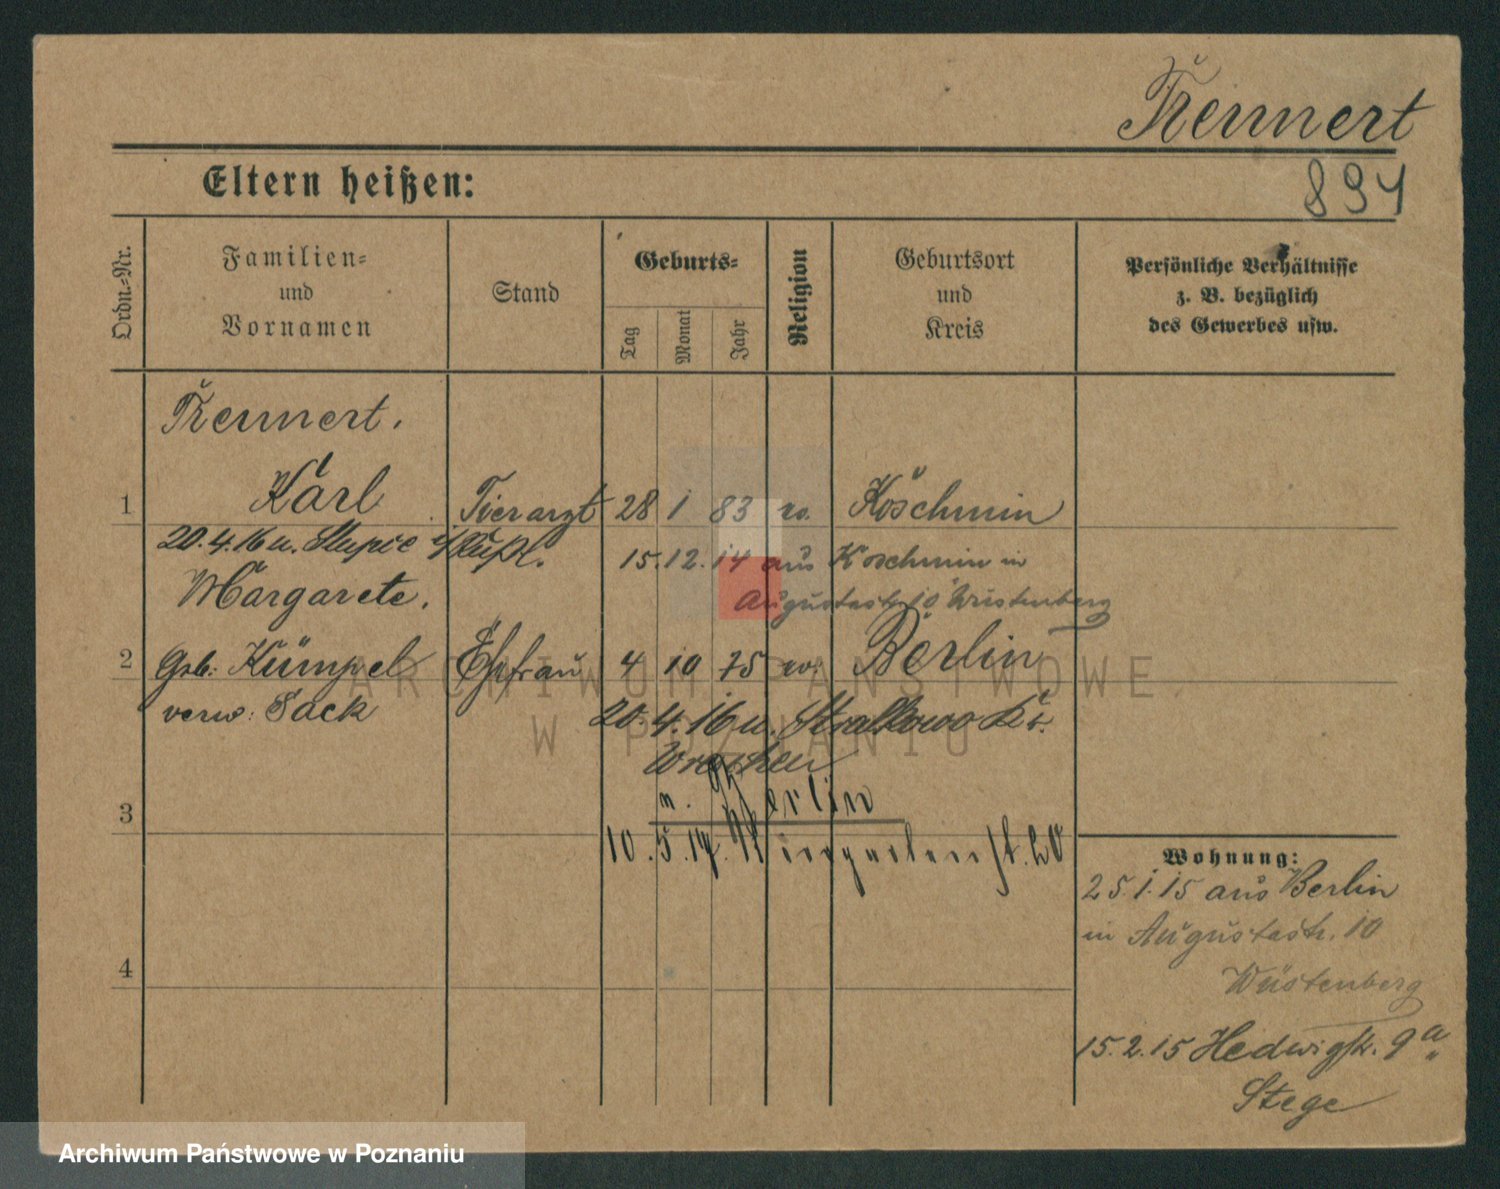 Trennert
894
Eltern heißen:
Ordn.-Nr.
Familien-
und
Vornamen
Stand
Geburts-
Tag
Monat
Jahr
Religion
Geburtsort
und
Kreis
Persönliche Verhältnisse
z. B. bezüglich
des Gewerbes usw.
Trennert.
1 Karl Tierarzt 28 1 83 ev. Koschmin
20.4.16 n. Slupie
15.12.14 aus Koschmin in
Augustastr. 10 Wüstenberg
Margarete.
2 Geb. Kümpel Ehefrau 4 10 75 ev. Berlin
verw: Sack
20.4.16 n. Stralkowo Kr.
Wreschen
n. Berlin
3
10.5.17. str. 20
Wohnung:
25.1.15 aus Berlin
in Augustastr. 10
Wüstenberg
4
15.2.15 Hedwigstr. 9a
Stege
ARCHIWUM PAŃSTWOWE
W POZNANIU
Archiwum Państwowe w Poznaniu